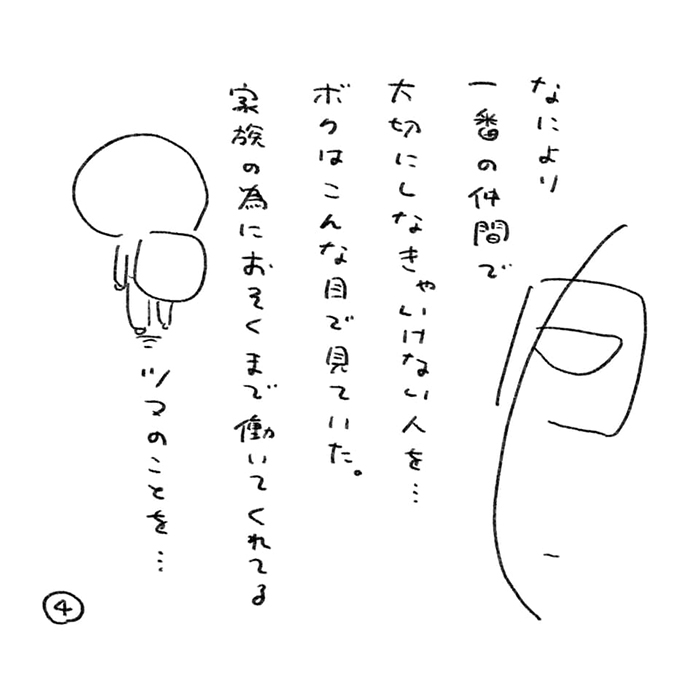 なにより
一番の仲間で
大切にしなきゃいけない人を…
ボクはこんな目で見ていた。
家族の為におそくまで働いてくれてる
ツマのことを…
④